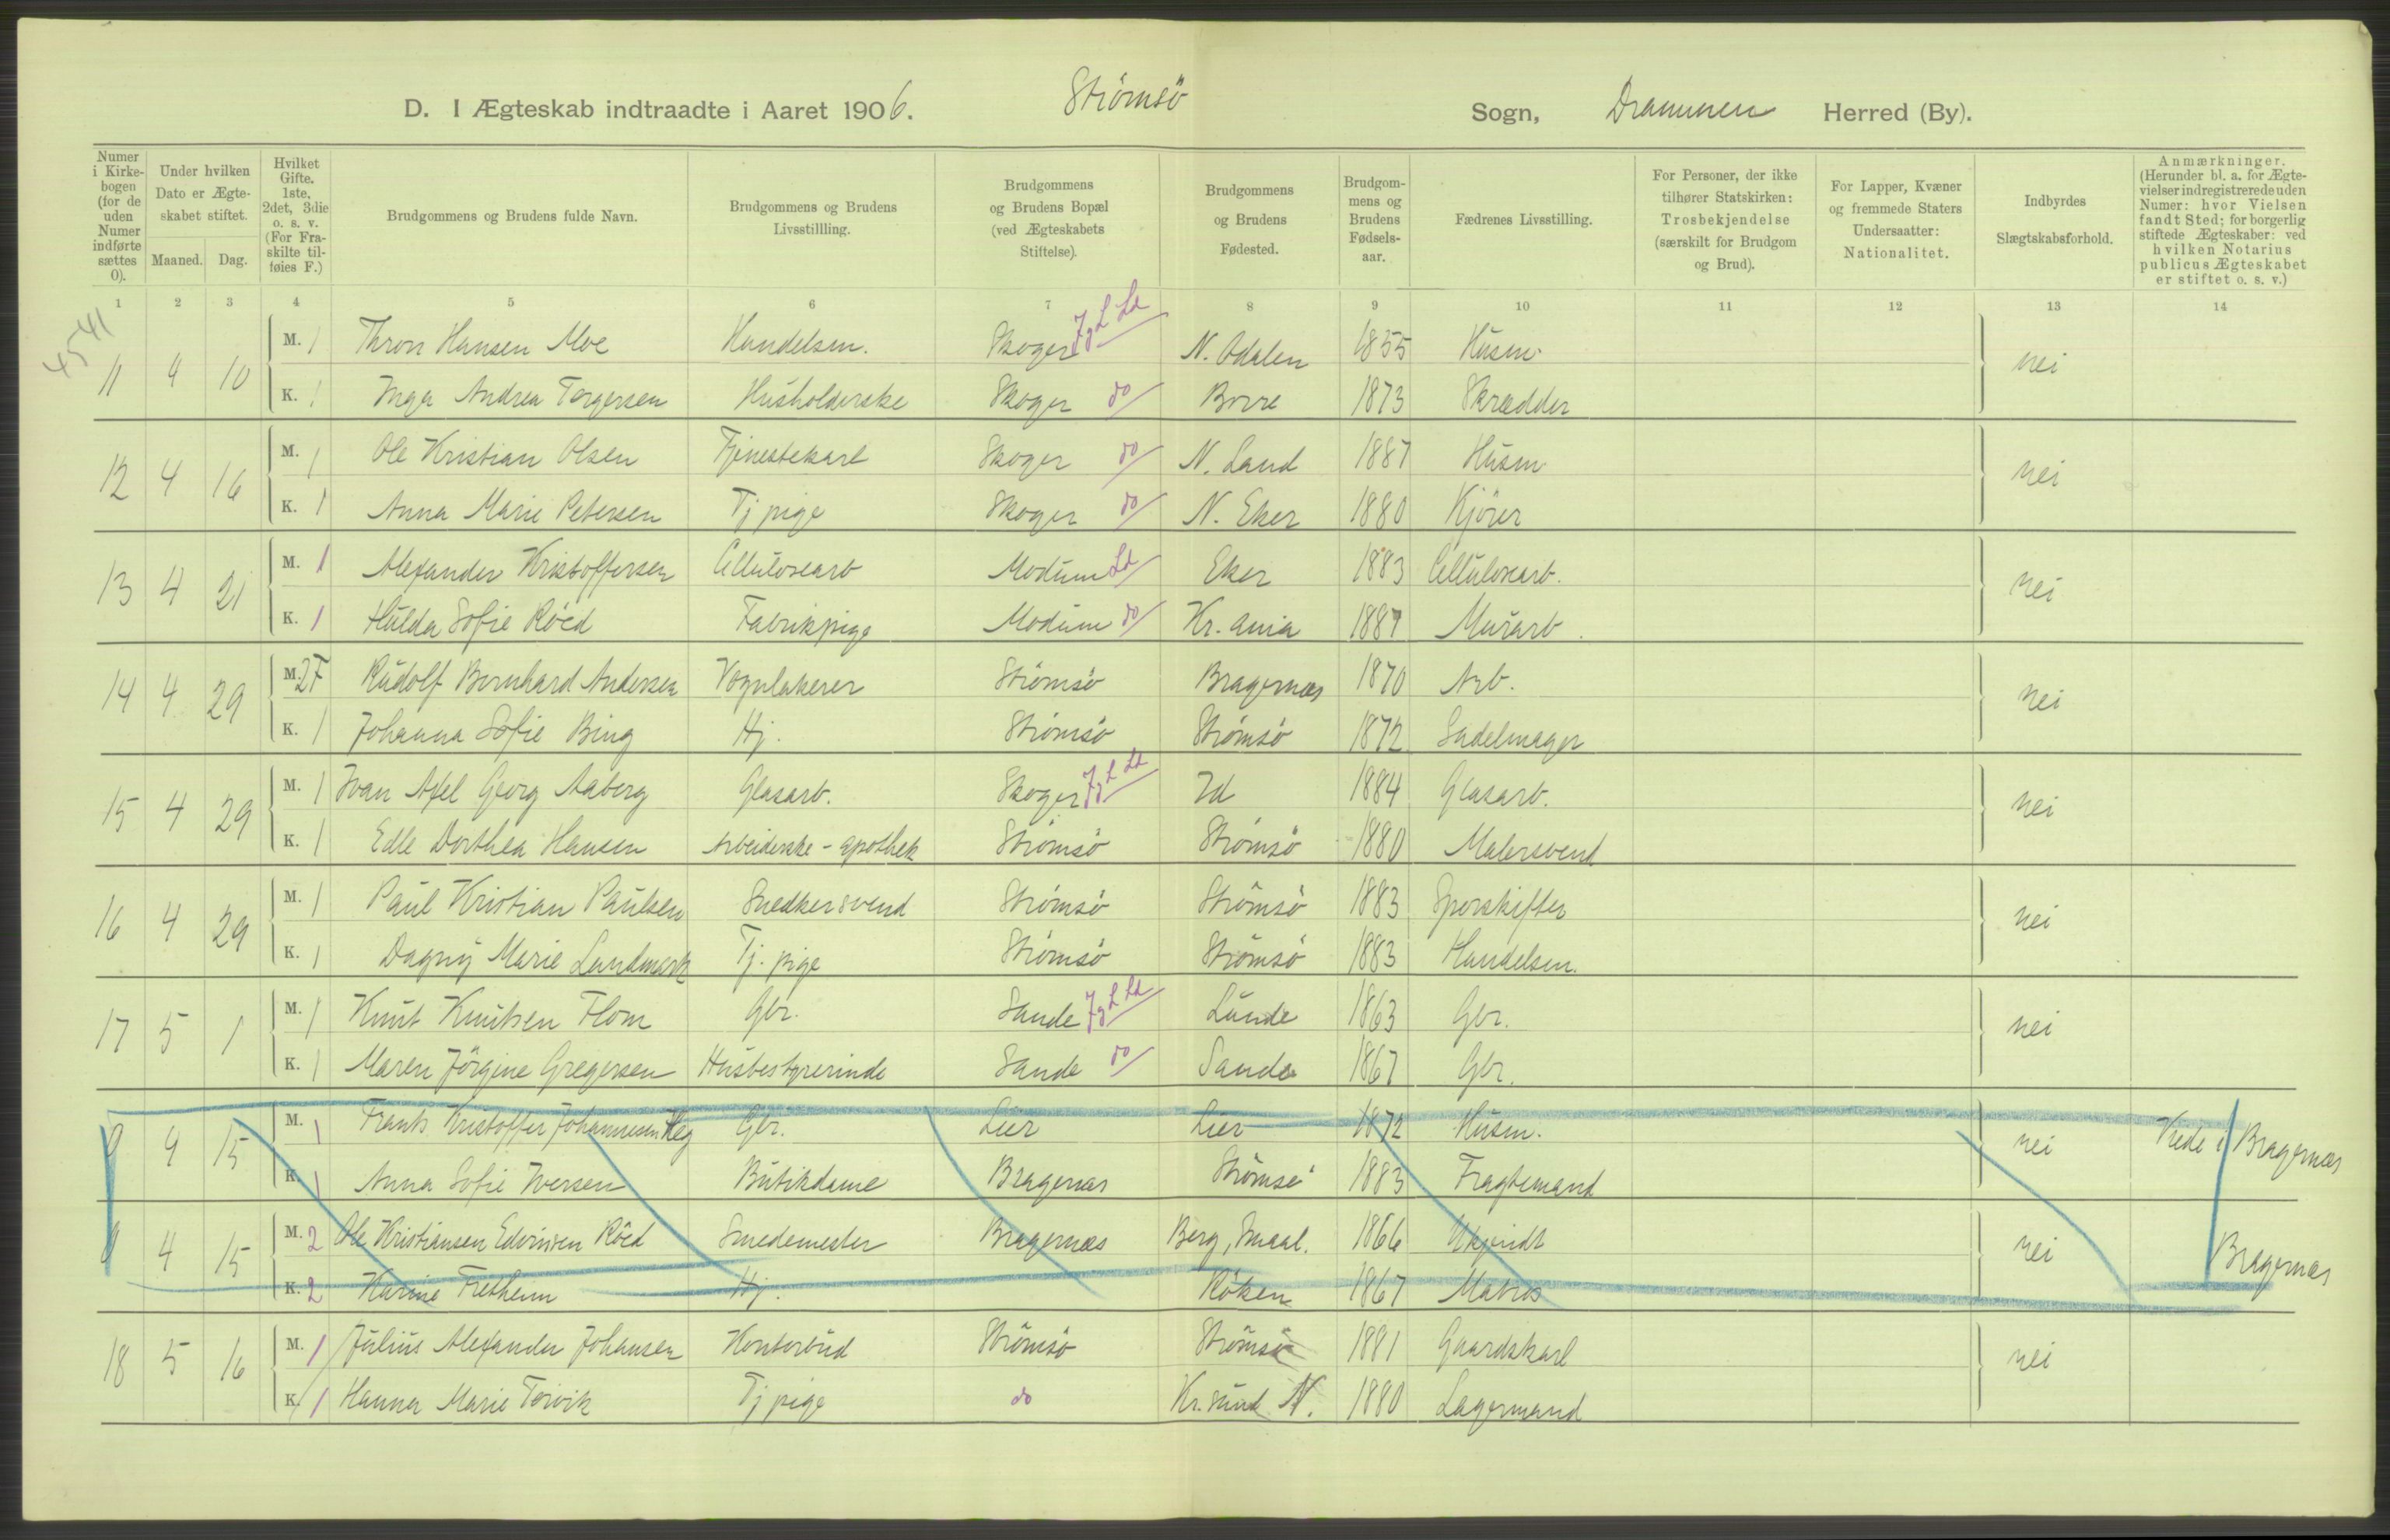 D. I Ægteskab indtraadte i Aaret 1906. Strömsö Sogn, Drammen Herred (By).
Numer i Kirkebogen (for de uden Numer indførte sættes 0). | Under hvilken Dato er Ægteskabet stiftet. Maaned. Dag. | Hvilket Gifte. 1ste, 2det, 3die o. s. v. (For Fraskilte tilføies F.) | Brudgommens og Brudens fulde Navn. | Brudgommens og Brudens Livsstillling. | Brudgommens og Brudens Bopæl (ved Ægteskabets Stiftelse). | Brudgommens og Brudens Fødested. | Brudgommens og Brudens Fødselsaar. | Fædrenes Livsstilling. | For Personer, der ikke tilhører Statskirken: Trosbekjendelse (særskilt for Brudgom og Brud). | For Lapper, Kvæner og fremmede Staters Undersaatter: Nationalitet. | Indbyrdes Slægtskabsforhold. | Anmærkninger. (Herunder bl. a. for Ægtevielser indregistrerede uden Numer: hvor Vielsen fandt Sted; for borgerlig stiftede Ægteskaber: ved hvilken Notarius publicus Ægteskabet er stiftet o. s. v.)
1 2 3 4 5 6 7 8 9 10 11 12 13 14
4541
11 4 10 M. 1 Thron Hansen Moe Handelsm. Skoger Jg L Ld N. Odalen 1855 Husm. nei
K. 1 Inga Andrea Torgersen Husholderske Skoger do Borre 1873 Skrædder
12 4 16 M. 1 Ole Kristian Olsen Tjenestekarl Skoger do N. Land 1887 Husm. nei
K. 1 Anna Marie Petersen Tj pige Skoger do N. Eker 1880 Kjörer
13 4 21 M. 1 Alexander Kristoffersen Cellulosearb Modum Ld Eker 1883 Cellulosearb. nei
K. 1 Hulda Sofie Röed Fabrikpige Modum do Kr.ania 1887 Murarb.
14 4 29 M. 2F Rudolf Bernhard Andersen Vognlakerer Strömsö Bragernæs 1870 Arb. nei
K. 1 Johanna Sofie Bing Hj. Strömsö Strömsö 1872 Sadelmager
15 4 29 M. 1 Ivan Axel Georg Aaberg Glasarb. Skoger Jg L Ld Id 1884 Glasarb. nei
K. 1 Edle Dorthea Hansen Arbeiderske - apothek Strömsö Strömsö 1880 Malersvend
16 4 29 M. 1 Paul Kristian Paulsen Snedkersvend Strömsö Strömsö 1883 Sporskifter nei
K. 1 Dagny Marie Landmark Tj. pige Strömsö Strömsö 1883 Handelsm.
17 5 1 M. 1 Knut Knutsen Flom Gbr. Sande Jg L Ld Lunde 1863 Gbr. nei
K. 1 Maren Jörgine Gregersen Husbestyrerinde Sande do Sande 1867 Gbr.
0 4 15 M. 1 Frants Kristoffer Johannesen Heg Gbr. Lier Lier 1872 Husm. nei Viede i Bragernæs
K. 1 Anna Sofie Iversen Butikdame Bragernæs Strömsö 1883 Fragtemand
0 4 15 M. 2 Ole Kristiansen Edvinsen Röed Smedemester Bragernæs Berg, Smaal. 1866 Ukjendt nei Bragernæs
K. 2 Karine Fretheim Hj. Röken 1867 Matros
18 5 16 M. 1 Julius Alexander Johansen Kontorbud Strömsö Strömsö 1881 Gaardskarl nei
K. 1 Hanna Marie Torvik Tj pige do Kr.sund N. 1880 Lagermand